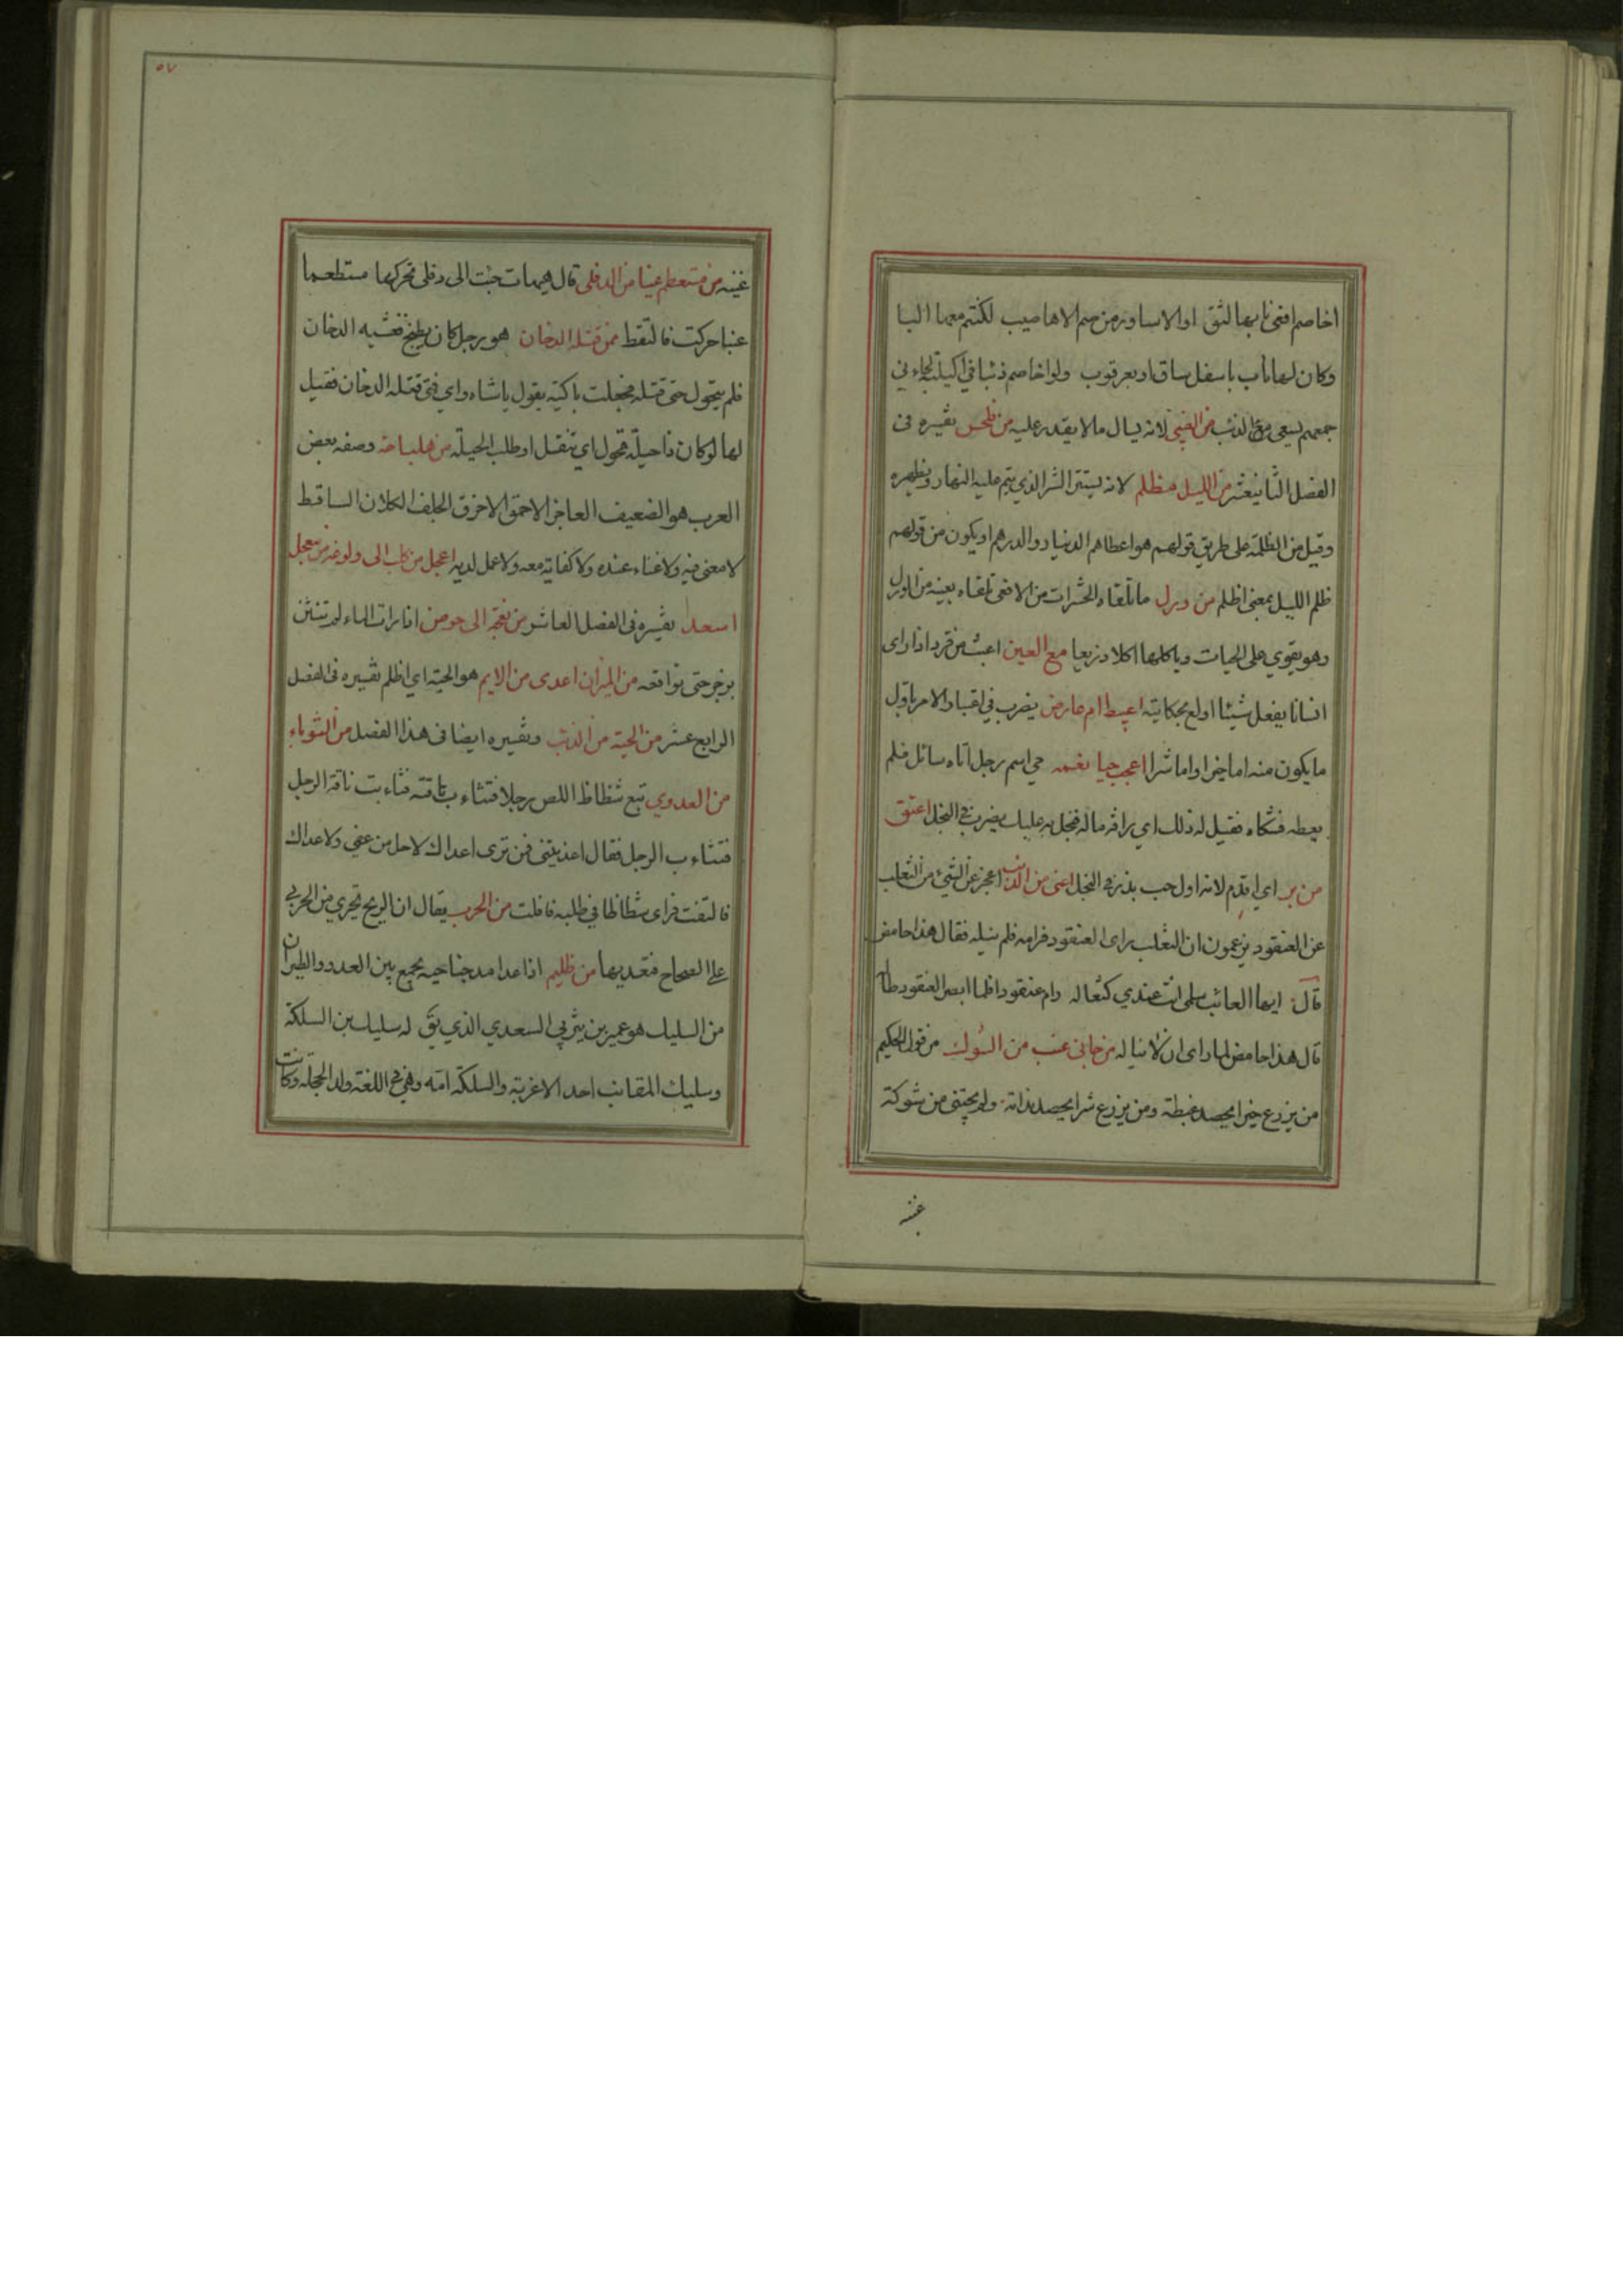 اخاصم افعى نابها لثق اوالاساود من صم الاهاضيب لكنتم معها البا
وكان لها ناب باسفل ساق او بعرقوب ولو اخاصم ذئبا في اكيلته لجاءني
جمعهم يسعى مع الذئب من الصبي لانه يسال مالا يقدر عليه من فلحس تفسيره فى
الفصل الثانيعشر من الليل مظلم لانه يستر الشر الذي يتم عليه النهار ويظهره
وقيل من الظلمة على طريق قولهم هو اعطاهم الدينار والدرهم او يكون من قولهم
ظلم الليل بمعنى اظلم من ورل ما تلقاه الحشرات من الافعى تلقاه بعينه من الورل
وهو يقوي على الحيات وياكلها اكلا ذريعا مع العين اعبث من قرد اذا راى
انسانا يفعل شيئا اولع بحكايته ام عارض يضرب في الامر باول
ما يكون منه اما خيرا واما شرا اعجب حيا نعمه حي اسم رجل اتاه سائل فلم
يعطه فشكاه فقيل له ذلك اي يضرب في البخل اعتق
من بر اي اقدم لانه اول حب بذر من الذئب اعجز عن الشيء من الثعلب
عن العنقود يزعمون ان الثعلب راى العنقود فرامه فلم ينله فقال هذا حامض
قال ايها العائب سلمى انت عندي كثعاله رام عنقودا فلما ابصر العنقود طاله
قال هذا حامض لما راى ان لا يناله من جانى عنب من الشوك من قول الحكيم
من يزرع خيرا يحصد غبطة ومن يزرع شرا يحصد ندامة ولم يجتنى من شوكة
عنبه
عنبه من مستعطم عنبا من الدفلى قال هيهات جئت الى دفلى تحركها مستطعما
عنبا حركت فالتقط ممن قتله الدخان هو رجل كان يطبخ فغشيه الدخان
فلم يتحول حتى قتله فجعلت باكيته يقول يا شاه واي فتى قتله الدخان فقيل
لها لو كان ذا حيلة تحول اي تنقل او طلب الحيلة من هلباجة وصفه بعض
العرب هو الضعيف العاجز الاحمق الاخرق الجلف الكلان الساقط
لا معنى فيه ولا غناء عنده ولا كفاية معه ولا عمل لديه اعجل من كلب الى ولوغه من معجل
اسعد تفسيره فى الفصل العاشر من نعجة الى حوض اذا رات الماء لم تنثن
بزجر حتى تواقعه من الميزان اعدى من الايم هو الحية اي اظلم تفسيره فى الفصل
الرابع عشر من الحية من الذئب وتفسيره ايضا فى هذا الفصل من الثوباء
من العدوي تبع شظاظ اللص رجلا فتثاءب ناقته فتثاءبت ناقة الرجل
فتثاءب الرجل فقال اعديتنى فمن ترى اعداك لاحل من عفي ولا عداك
فالتفت فراى شظاظا في طلبه فافلت من الجرب يقال ان الريح تجري من الجربى
على الصحاح فتعديها من ظليم اذا عدا مد جناحيه يجمع بين العدو والطيران
من السليك هو عمير بن يثربي السعدي الذي يق له سليك بن السلكة
وسليك المقانب احد الاغربة والسلكة امه وهي في اللغة ولد الحجلة وكانت
٥٧